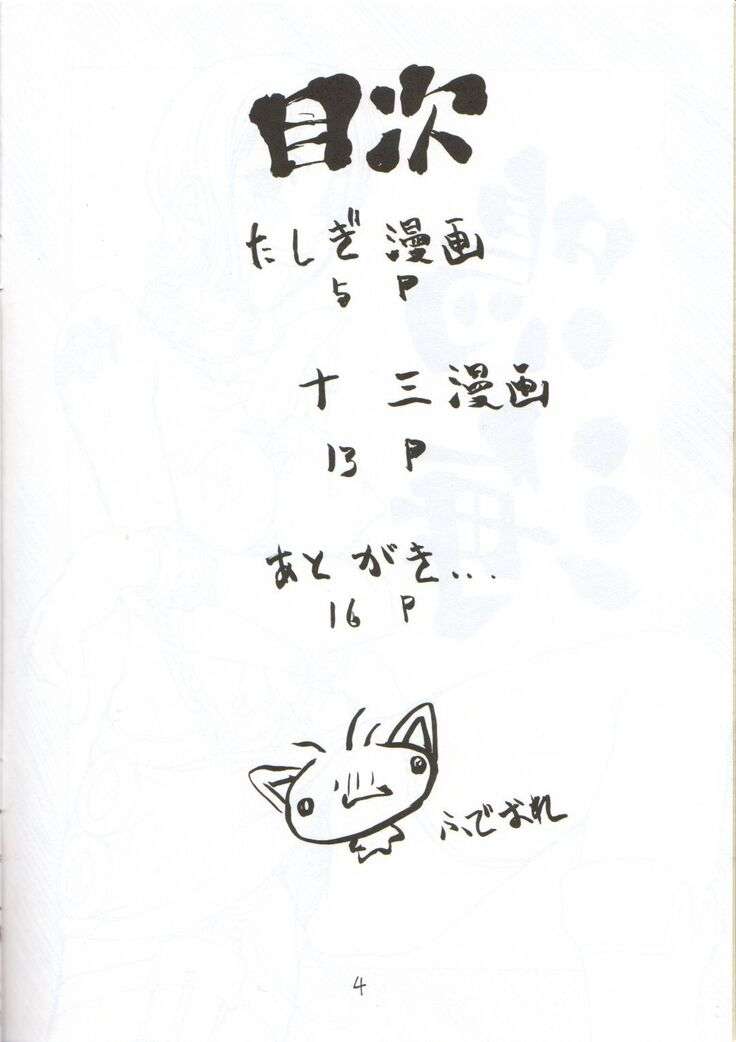 目次
たしぎ漫画
5 P
十三漫画
13 P
あとがき...
16 P
ふでおれ
4